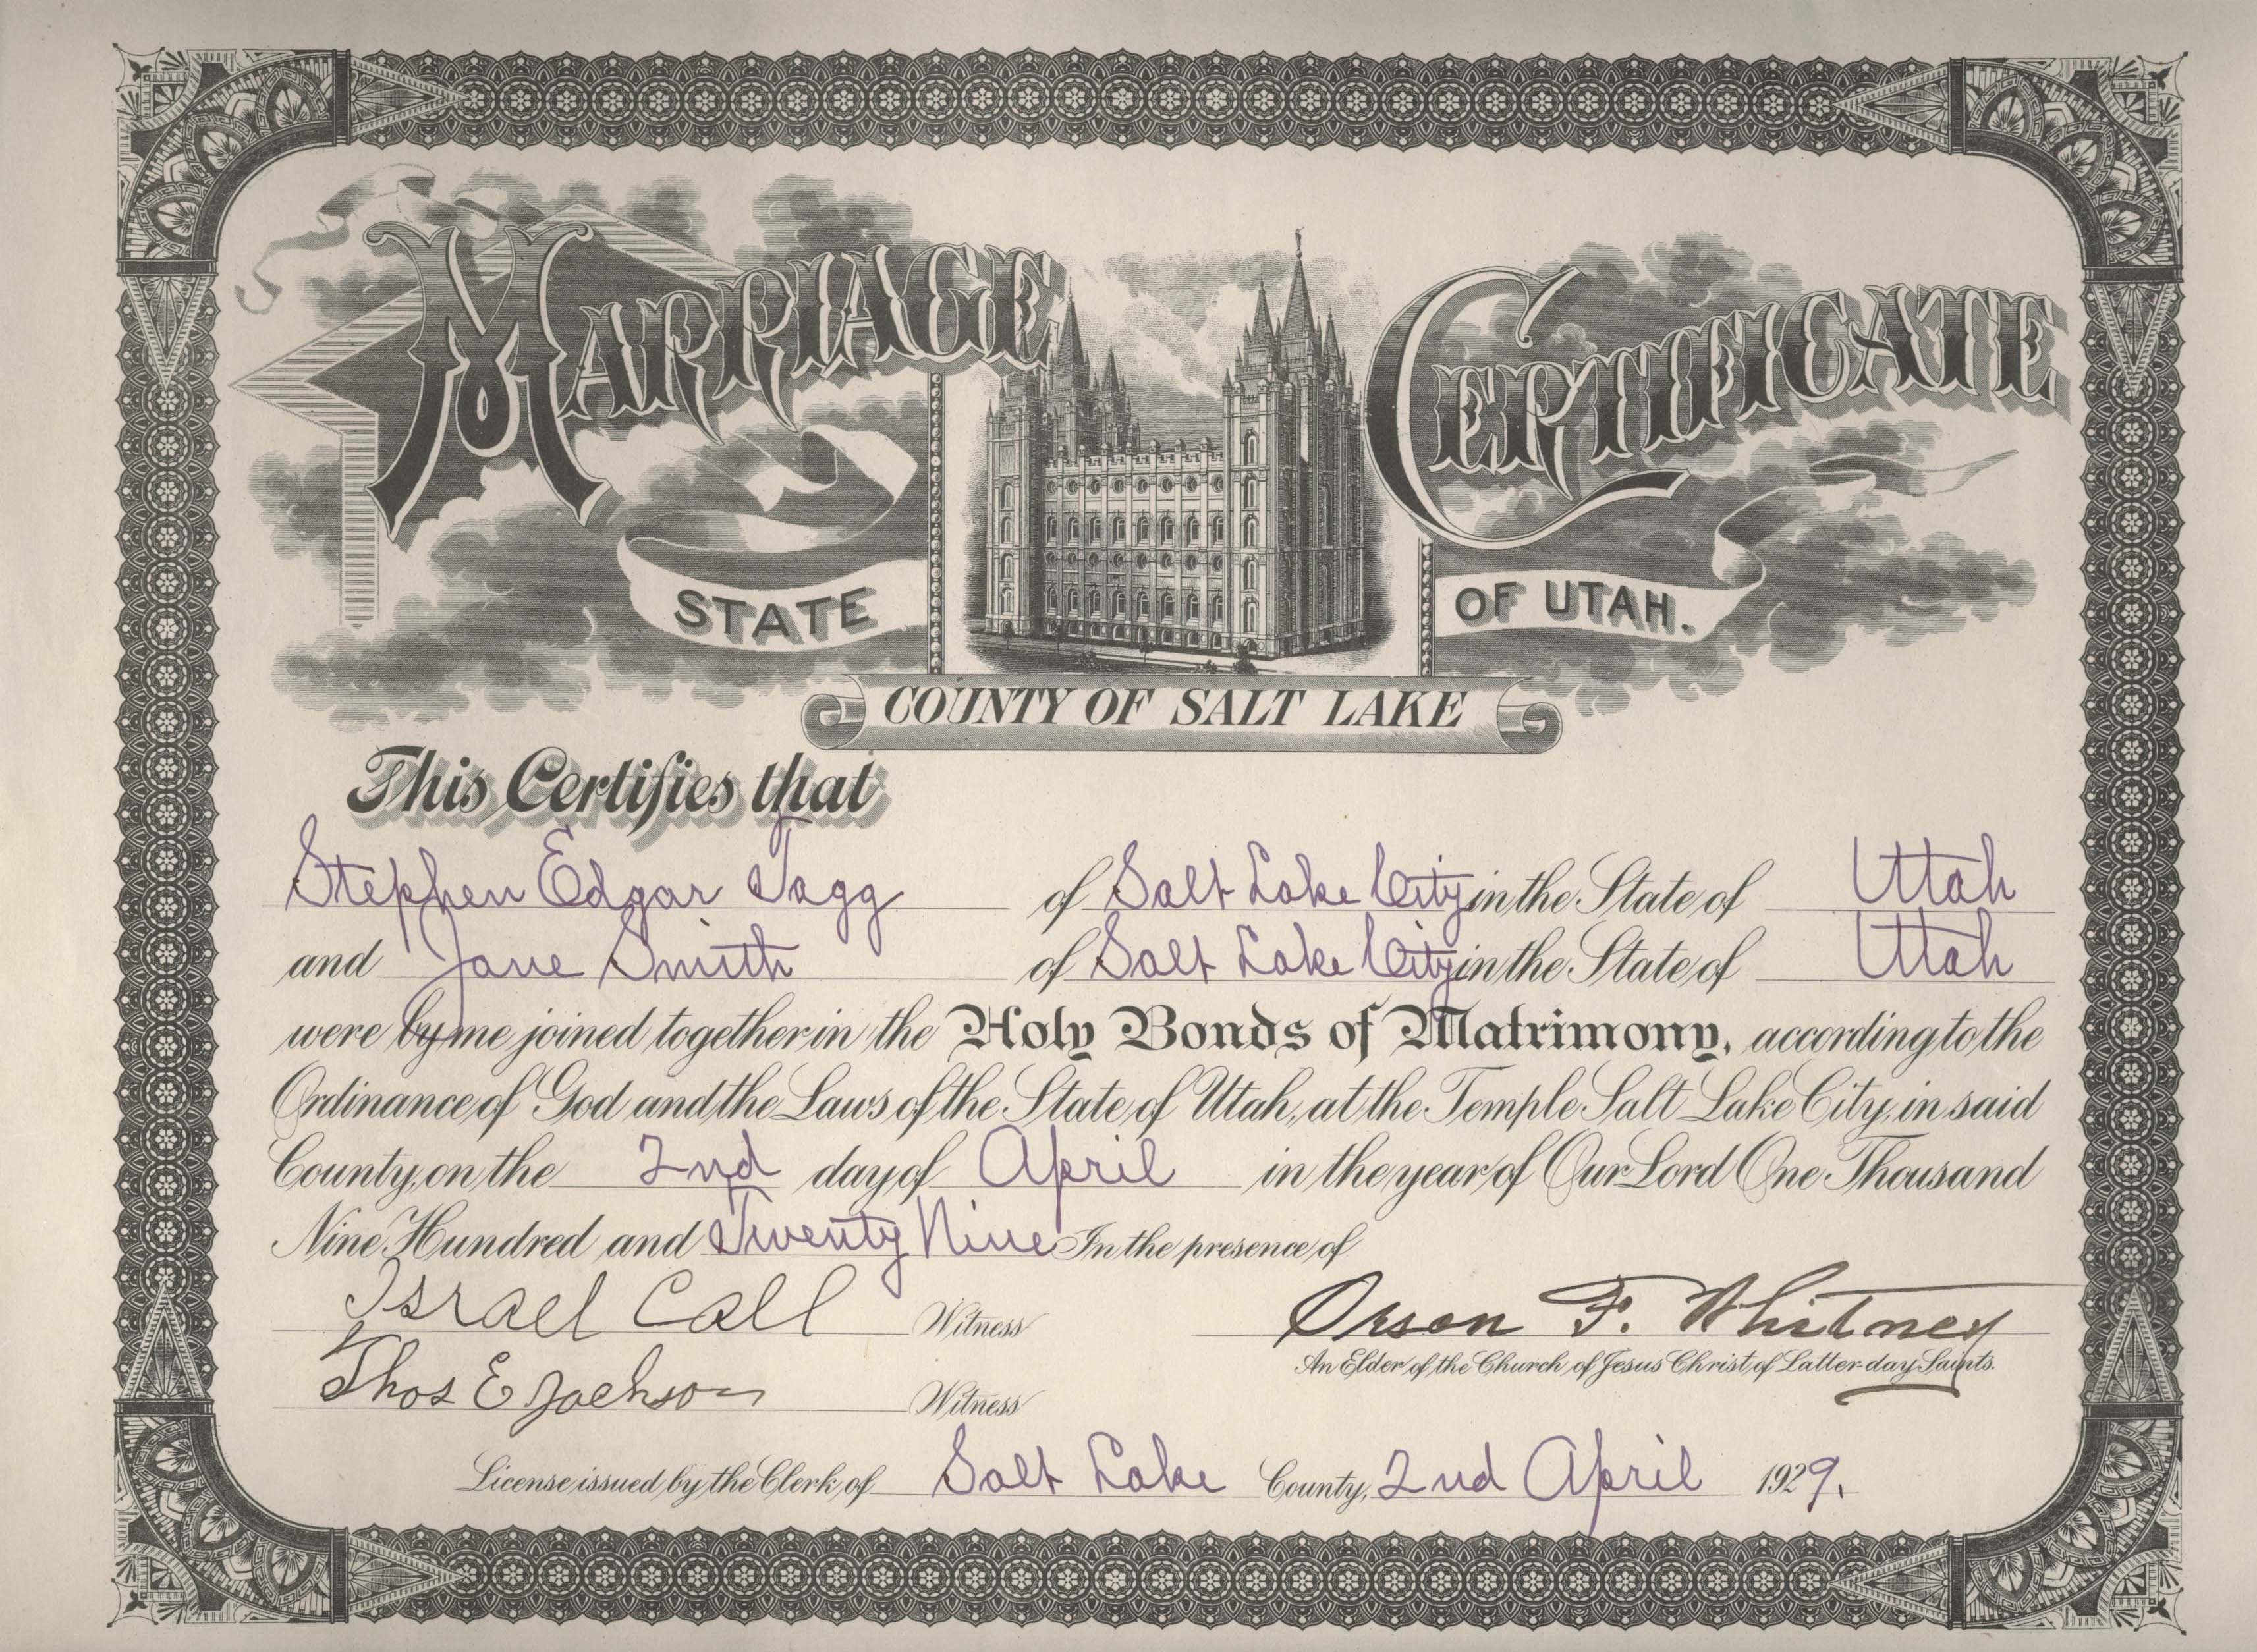 MARRIAGE CERTIFICATE
STATE OF UTAH.
COUNTY OF SALT LAKE
This Certifies that
Stephen Edgar Tagg of Salt Lake City in the State of Utah
and Jane Smith of Salt Lake City in the State of Utah
were by me joined together in the Holy Bonds of Matrimony, according to the
Ordinance of God and the Laws of the State of Utah, at the Temple Salt Lake City, in said
County, on the 2nd day of April in the year of Our Lord One Thousand
Nine Hundred and Twenty Nine In the presence of
Israel Call Witness
Orson F. Whitney
An Elder of the Church of Jesus Christ of Latter-day Saints.
Thos E Jackson Witness
License issued by the Clerk of Salt Lake County, 2nd April 1929.